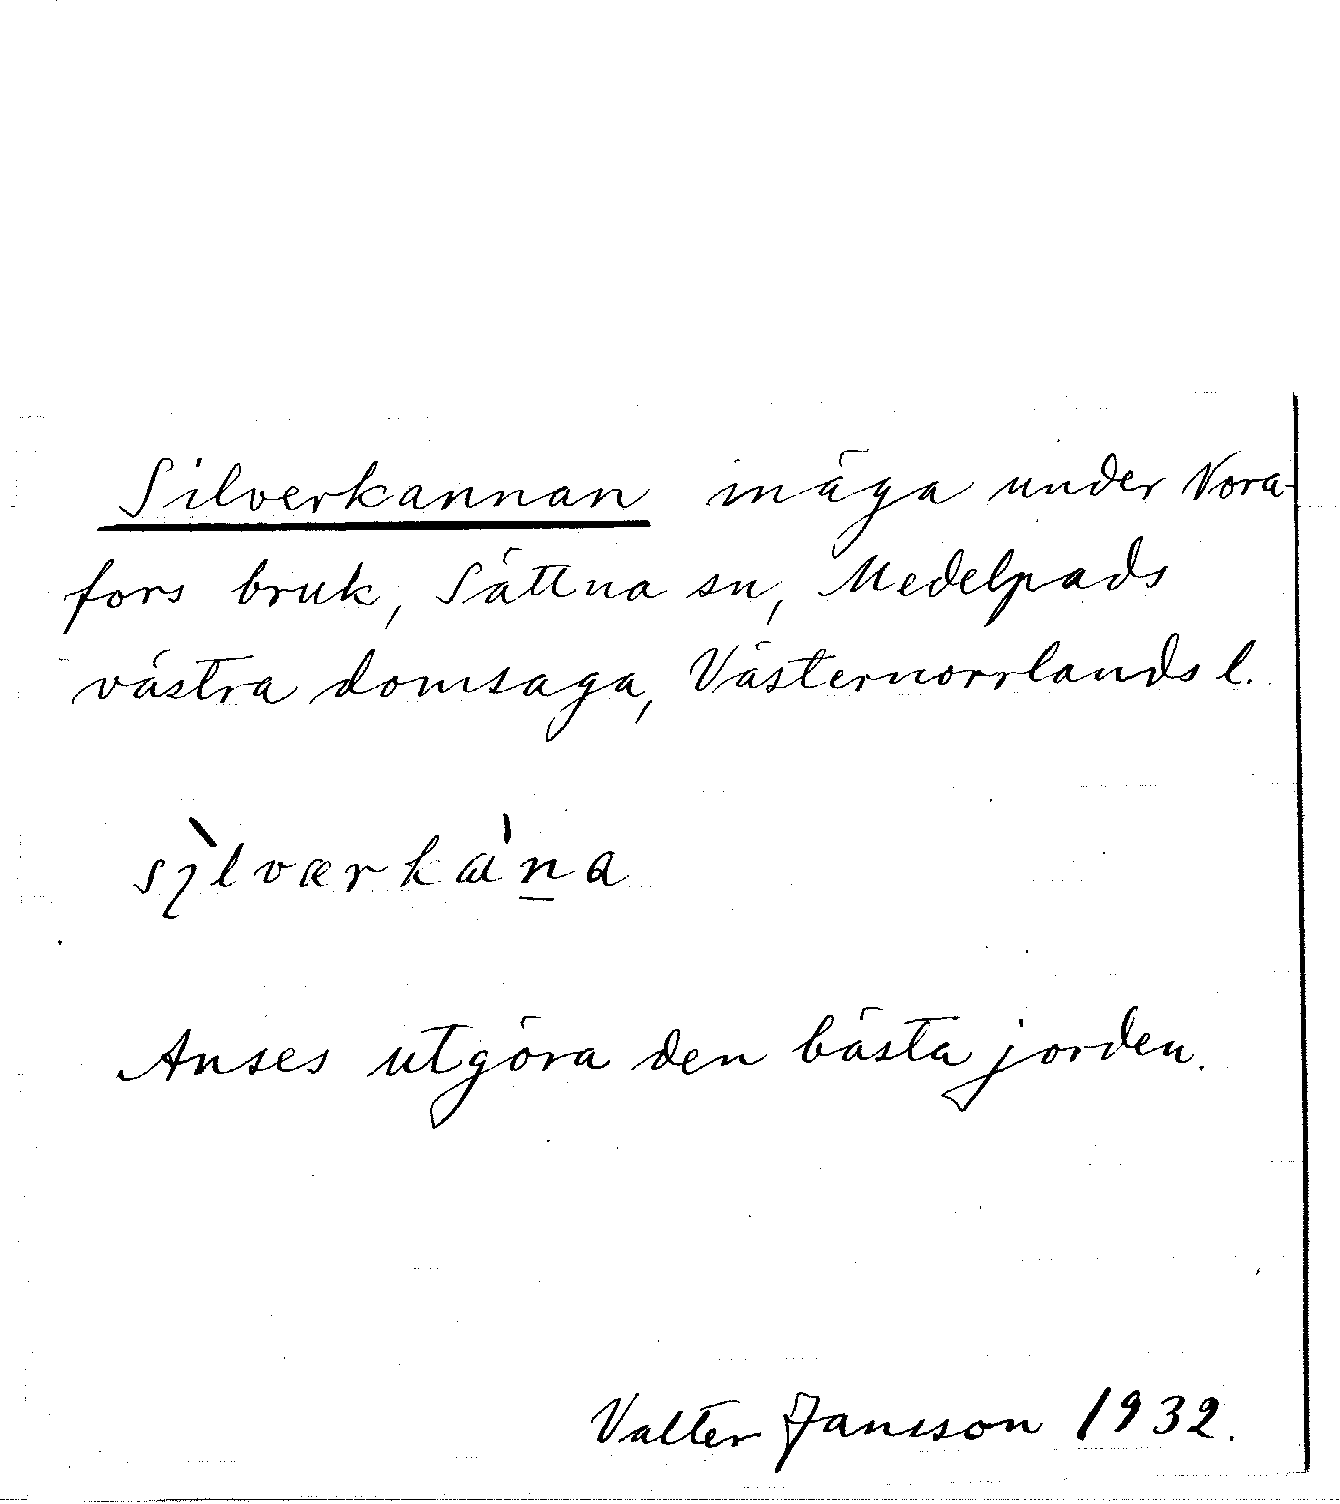 Silverkannan inäga under Nora-
fors bruk, Sättna sn, Medelpads
västra domsaga, Västernorrlands l.
sìlværkà'na
Anses utgöra den bästa jorden.
Valter Jansson 1932.